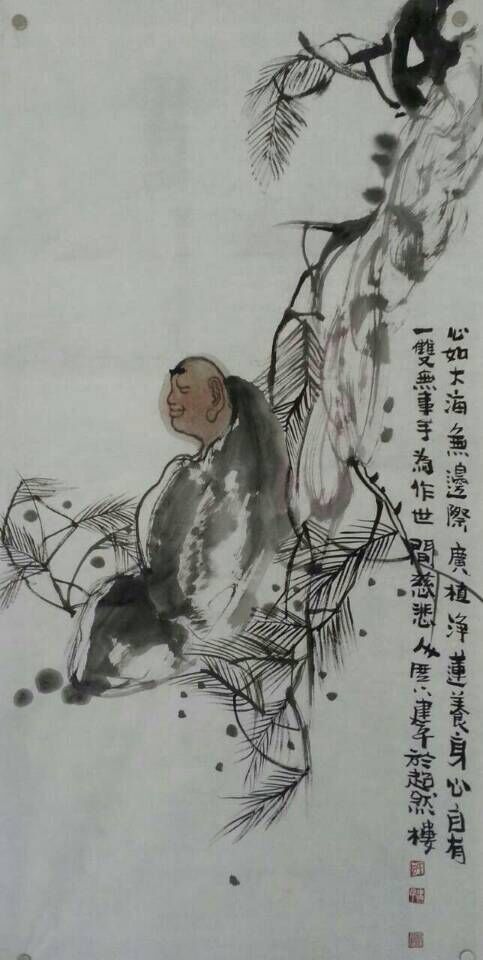 心如大海無邊際廣植淨蓮養身心自有
一雙無事手為作世間慈悲人 於超然樓